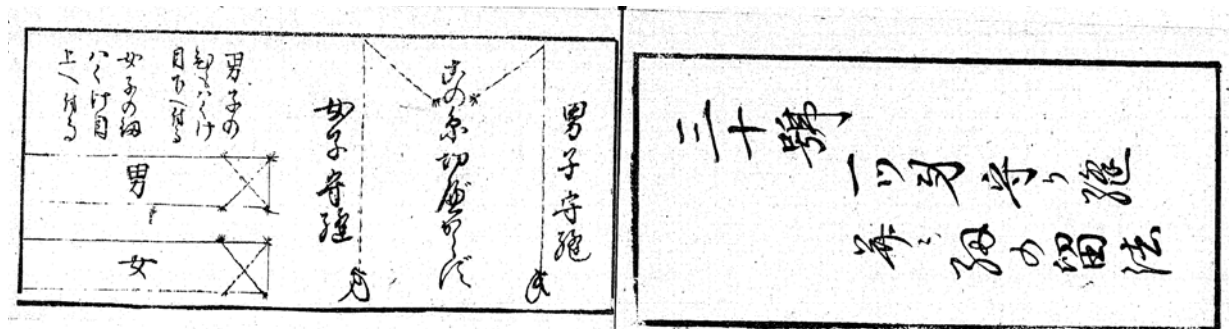 三十號
一ツ身守り縫
并ニ紐の留法
男子守縫
此の糸切るべからず
女子守縫
男子の
紐もくけ
目下へ付る
女子の紐
ハくけ目
上へ付る
男
女